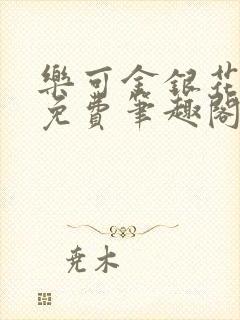 樂可金銀花
免費筆趣閣
尧木